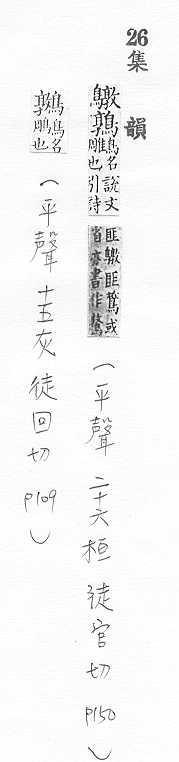 26
集韻
鷻鶉鳥名說文
雕也引詩
匪鷻匪鳶或
省亦書作鷻
(平聲 二十六桓 徒官切 P150)
鶉鳥名
鵰也
(平聲 十五灰 徒回切 P109)